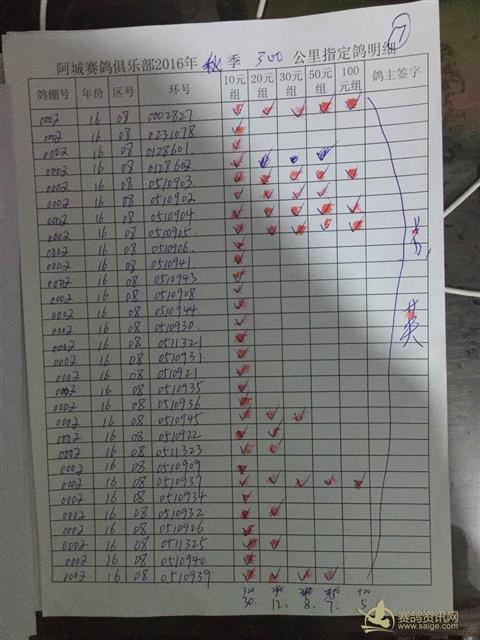 阿城赛鸽俱乐部2016年 秋 季 300 公里指定鸽明细
鸽棚号 年份 区号 环号 10元组 20元组 30元组 50元组 100元组 鸽主签字
0002 16 08 0002827 ✓ ✓ ✓ ✓ ✓
0002 16 08 0231078 ✓
0002 16 08 0128601. ✓
0002 16 08 0128602 ✓ ✓ ✓ ✓
0002 16 08 0510903 ✓ ✓ ✓ ✓ ✓
0002 16 08 0510902 ✓ ✓ ✓ ✓
0002 16 08 0510904 ✓ ✓ ✓ ✓ ✓
0002 16 08 0510905. ✓ ✓ ✓ ✓ ✓
0002 16 08 0510906. ✓
0002 16 08 0510941 ✓
0002 16 08 0510943 ✓
0002 16 08 0510908 ✓
0002 16 08 0510944 ✓
0002 16 08 0510930. ✓
0002 16 08 0511321 ✓
0002 16 08 0510931. ✓
0002 16 08 0510921 ✓
0002 16 08 0510935 ✓
0002 16 08 0510936 ✓
0002 16 08 0510945 ✓ ✓ ✓
0002 16 08 0510922 ✓ ✓
0002 16 08 0511323 ✓ ✓
0002 16 08 0510909 ✓
0002 16 08 0510937 ✓ ✓ ✓ ✓ ✓
0002 16 08 0510934 ✓
0002 16 08 0510932 ✓ ✓
0002 16 08 0510926 ✓
0002 16 08 0511325 ✓ ✓
0002 16 08 0510940 ✓
0002 16 08 0510939 ✓ ✓ ✓ ✓
30. 12. 8. 7. 5
赛鸽资讯网
www.saige.com